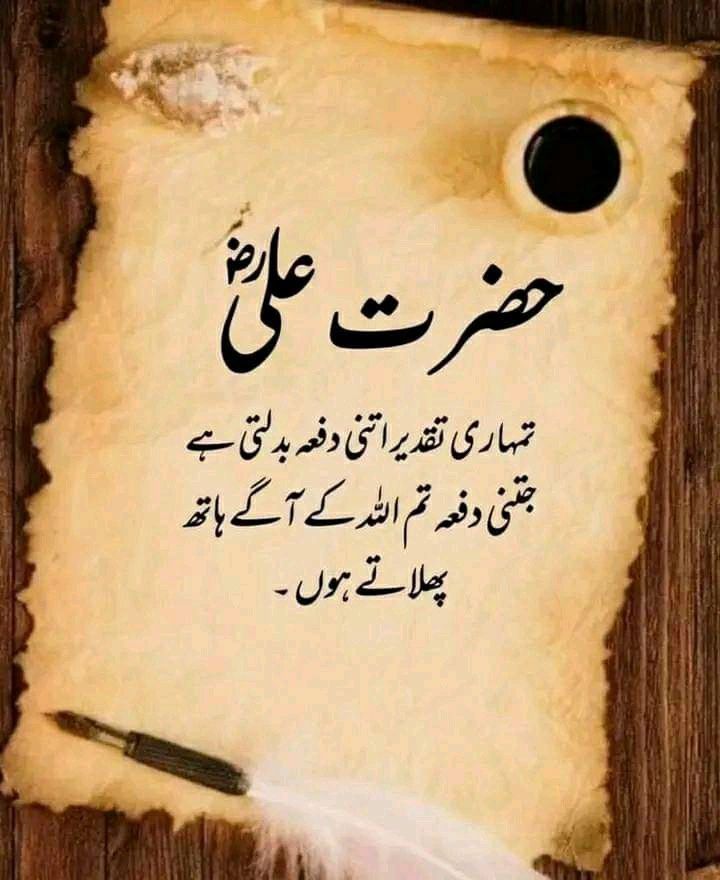 حضرت علی رض
تمہاری تقدیر اتنی دفعہ بدلتی ہے
جتنی دفعہ تم اللہ کے آگے ہاتھ
پھلاتے ہوں ۔